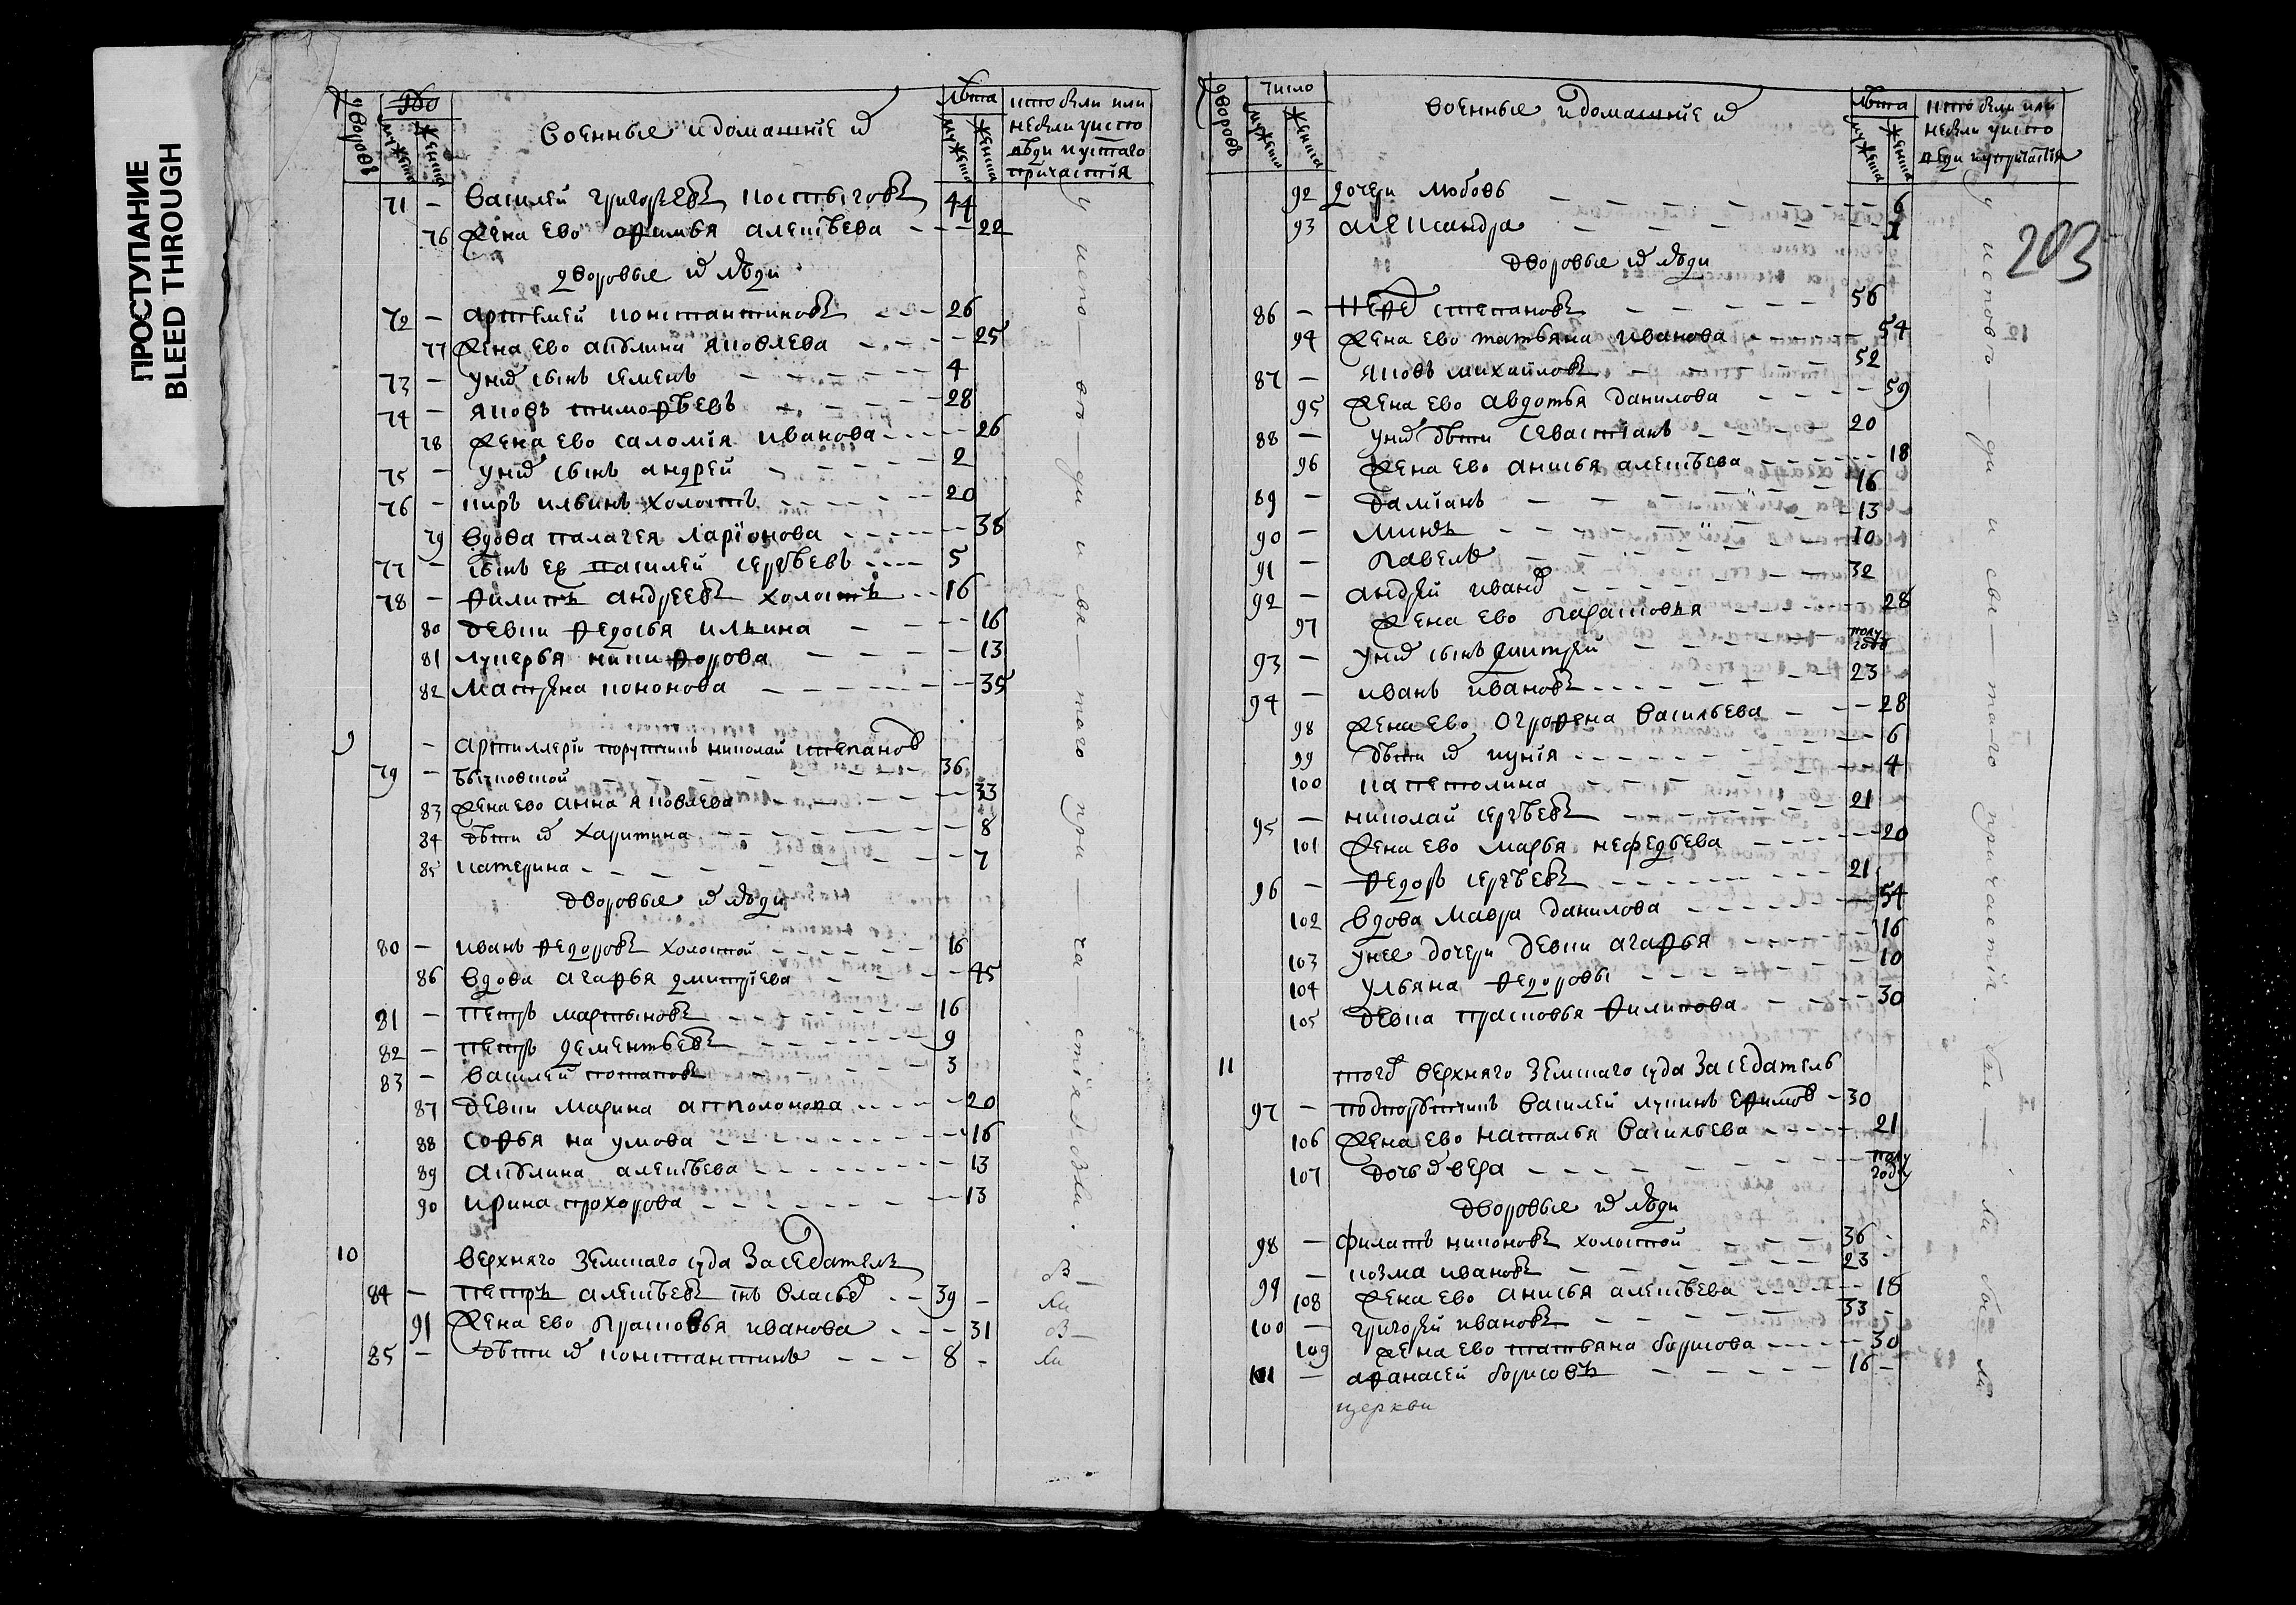 ПРОСТУПАНИЕ
BLEED THROUGH
дворовъ
мужеска
женска
военные и домашніе ихъ
лѣта
мужеска
женска
кто были или
не были у испо
вѣди и святаго
причастія
71 — Василей григорьевъ 44
76 жена ево офимья алексѣева 22
дворовые ихъ люди
72 — артемей константиновъ 26
77 жена ево акулина яковлева 25
73 — у них сынъ семенъ 4
74 — яковъ тимофѣевъ 28
78 жена ево саломія иванова 26
75 — у них сынъ андрей 2
76 — киръ ильинъ холостъ 20
79 вдова палагея ларіонова 38
77 — сынъ ее василей сергѣевъ 5
78 — филипъ андреевъ холостъ 16
80 девки федосья ильина 16
81 лукерья никифорова 13
82 матрена кононова 35
9 — артиллеріи порутчикъ николай степанов
79 — 36
83 жена ево анна яковлева 33
84 дѣти их харитина 8
85 катерина 7
дворовые их люди
80 — иванъ федоровъ холостой 16
86 вдова агафья дмитріева 45
81 — петръ мартыновъ 16
82 — петръ дементьевъ 9
83 — василей потаповъ 3
87 девки марина аполонова 20
88 софья наумова 16
89 акулина алексѣева 13
90 ирина прохорова 13
10 верхняго земскаго суда заседатель
84 — петръ алексѣевъ 39 —
91 жена ево прасковья иванова 31
85 — дѣти их константинъ 8 —
у испо вѣ ди и свя таго при ча стія были.
бы
ли
бы
ли
дворовъ
число
мужеска
женска
военные и домашніе их
лѣта
мужеска
женска
кто были или
не были у испо
веди и причастія
203
92 дочери любовь 6
93 александра 1
дворовые их люди
86 — степановъ 56
94 жена ево татьяна иванова 54
87 — яковъ михайловъ 52
95 жена ево авдотья данилова 59
88 — у них дѣти севастіанъ 20
96 жена ево анисья алексѣева 18
89 — даміанъ 16
90 — 13
91 — павелъ 10
92 — андрей иванов 32
97 жена ево парасковья 28
93 — у них сынъ дмитрей полу
года
94 — иванъ ивановъ 23
98 жена ево огрофена васильева 28
99 дѣти их 6
100 капетолина 4
95 — николай сергѣевъ 21
101 жена ево марья нефедьева 20
96 — федоръ сергѣевъ 21
102 вдова мавра данилова 54
103 у нее дочери девки агафья 16
104 ульяна федоровы 10
105 девка прасковья филипова 30
11 тогож верхняго земскаго суда заседатель
97 — подпорутчикъ василей лукинъ ефимов 30
106 жена ево наталья васильева 21
107 дочь их вера полу
году
дворовые их люди
98 — филатъ никоновъ холостой 36 —
99 — козма ивановъ 23 —
108 жена ево анисья алексѣева 18
100 — григорей ивановъ 33 —
109 жена ево татьяна борисова 30
101 — афанасей борисовъ 16 —
церкви
у исповѣ ди и свя та го причастія бы ли